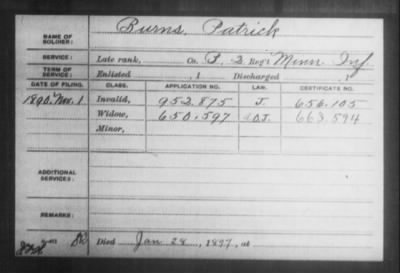 NAME OF SOLDIER: Burns, Patrick
SERVICE: Late rank, Co. B, 2 Reg't Minn Inf
TERM OF SERVICE: Enlisted , 1 Discharged , 1
DATE OF FILING. CLASS. APPLICATION NO. LAW. CERTIFICATE NO.
1890, Nov. 1 Invalid, 952.875 J. 656.105
Widow, 650.597 663.594
Minor,
ADDITIONAL SERVICES:
REMARKS:
Died Jan 28, 1897, at